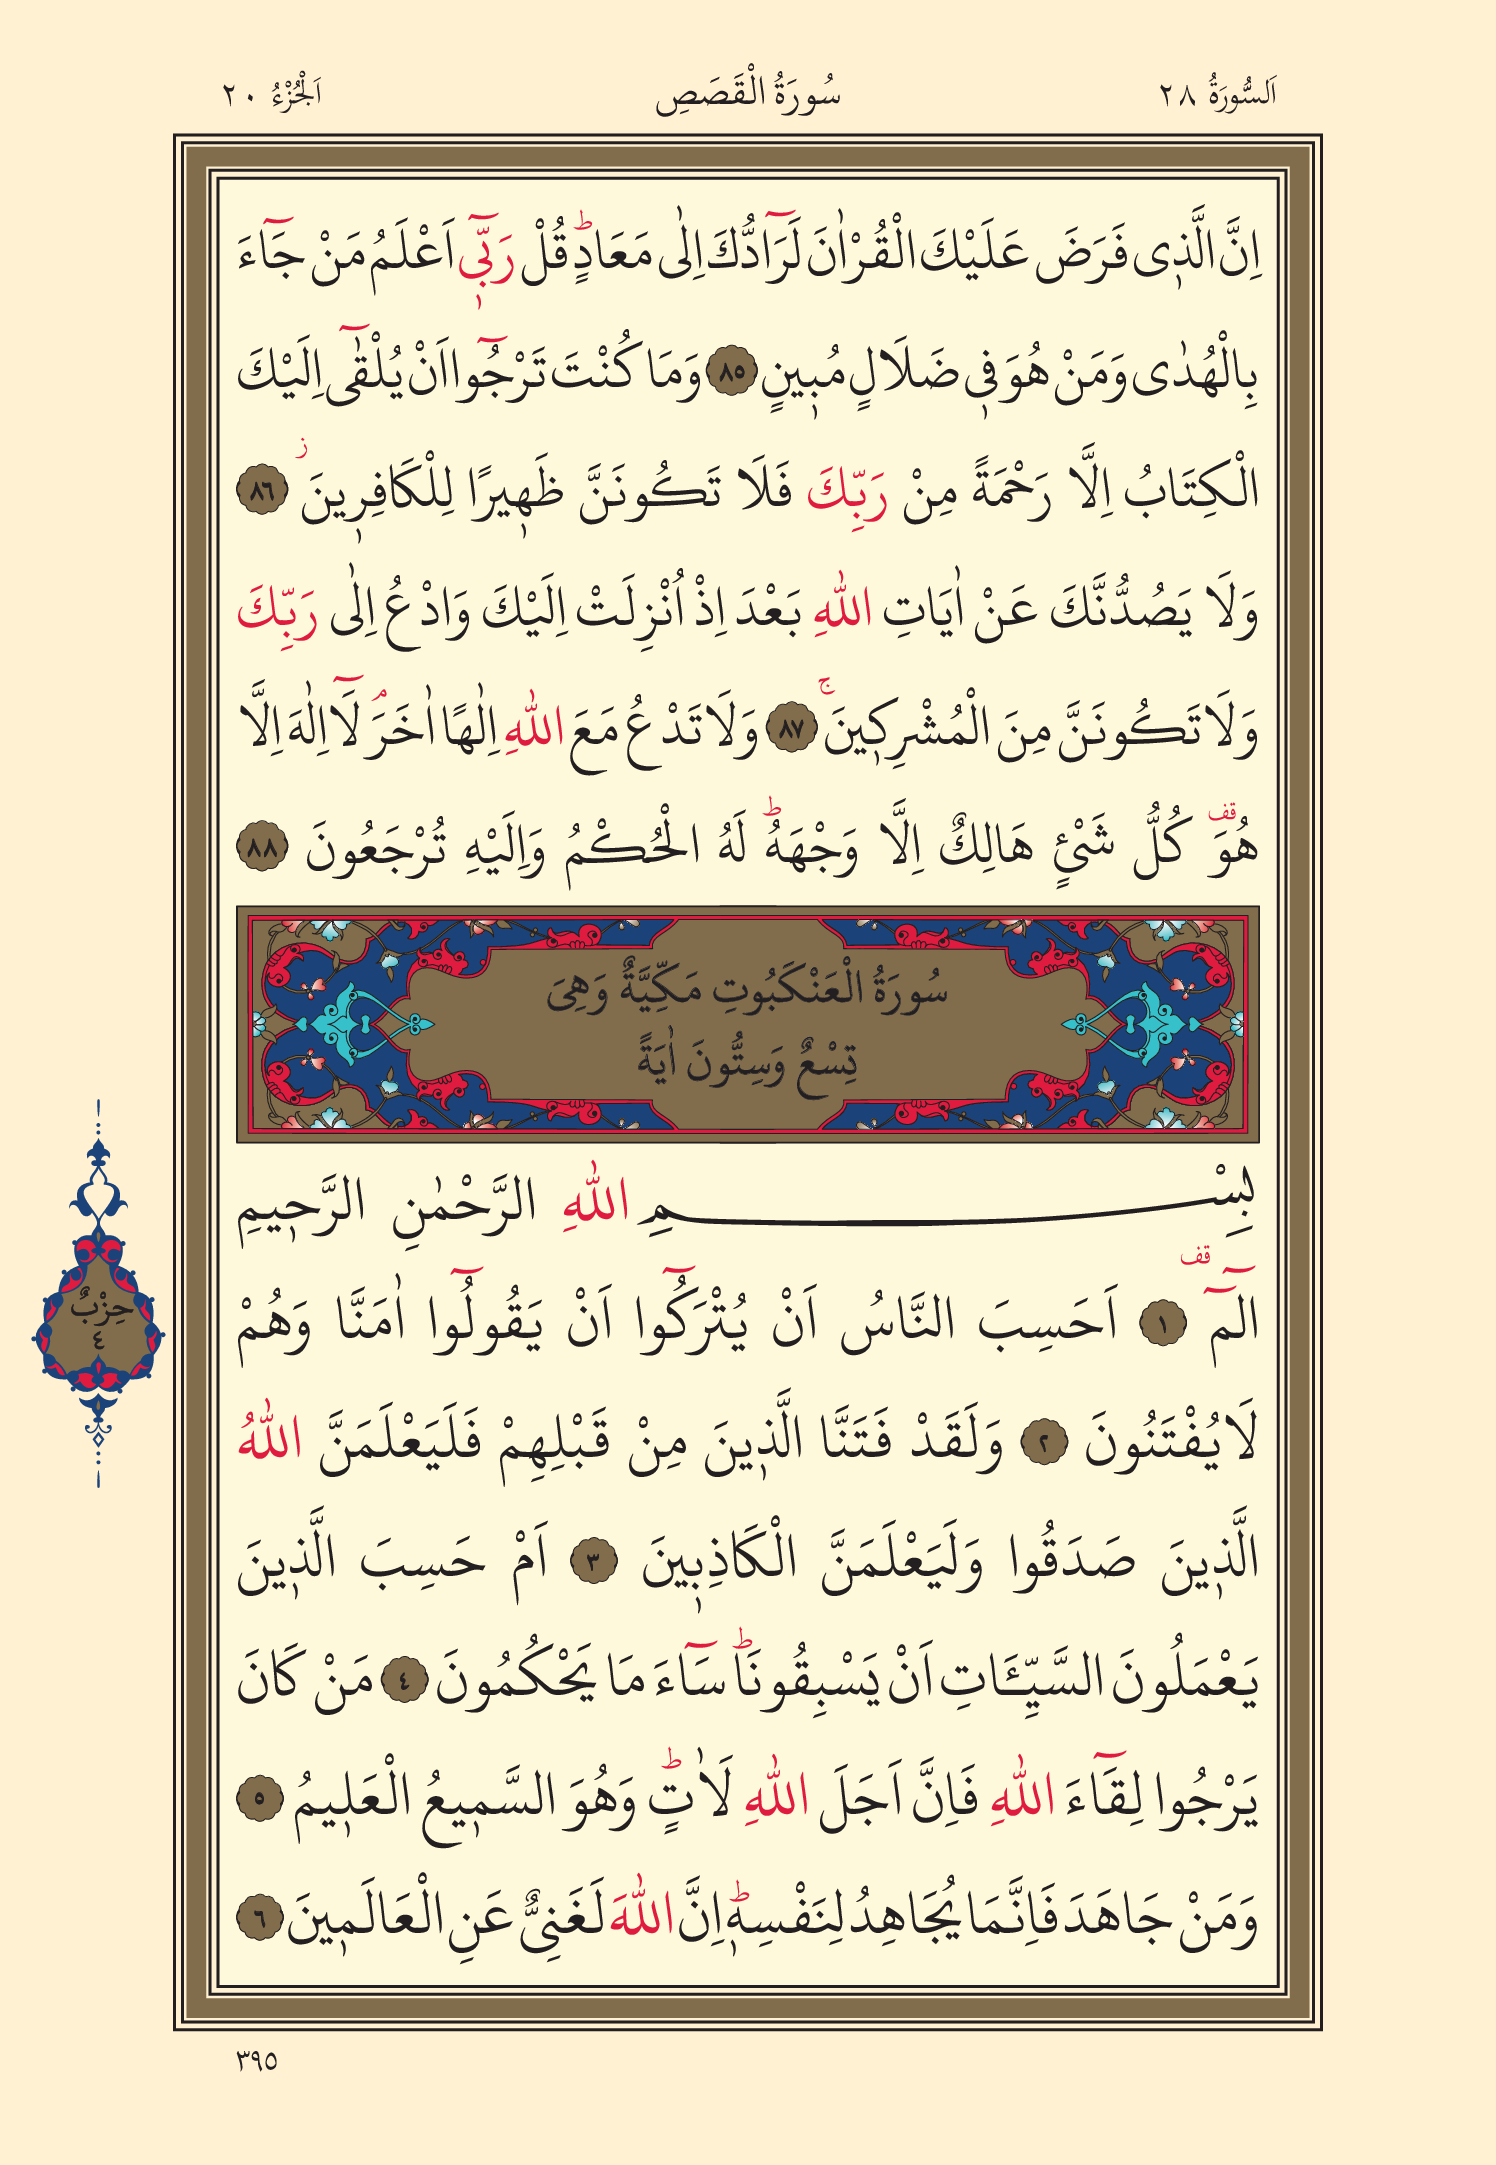 اَلسُّورَةُ ٢٨
سُورَةُ الْقَصَصِ
اَلْجُزْءُ ٢٠
اِنَّ الَّذ۪ى فَرَضَ عَلَيْكَ الْقُرْاٰنَ لَرَٓادُّكَ اِلٰى مَعَادٍۜ قُلْ رَبّ۪ٓى اَعْلَمُ مَنْ جَٓاءَ
بِالْهُدٰى وَمَنْ هُوَ ف۪ى ضَلَالٍ مُب۪ينٍ ٨٥ وَمَا كُنْتَ تَرْجُٓوا اَنْ يُلْقٰٓى اِلَيْكَ
الْكِتَابُ اِلَّا رَحْمَةً مِنْ رَبِّكَ فَلَا تَكُونَنَّ ظَه۪يرًا لِلْكَافِر۪ينَۘ ٨٦
وَلَا يَصُدُّنَّكَ عَنْ اٰيَاتِ اللّٰهِ بَعْدَ اِذْ اُنْزِلَتْ اِلَيْكَ وَادْعُ اِلٰى رَبِّكَ
وَلَا تَكُونَنَّ مِنَ الْمُشْرِك۪ينَۚ ٨٧ وَلَا تَدْعُ مَعَ اللّٰهِ اِلٰهًا اٰخَرَۢ لَٓا اِلٰهَ اِلَّا
هُوَ۠ كُلُّ شَىْءٍ هَالِكٌ اِلَّا وَجْهَهُۜ لَهُ الْحُكْمُ وَاِلَيْهِ تُرْجَعُونَ ٨٨
سُورَةُ الْعَنْكَبُوتِ مَكِّيَّةٌ وَهِىَ
تِسْعٌ وَسِتُّونَ اٰيَةً
بِسْمِ اللّٰهِ الرَّحْمٰنِ الرَّح۪يمِ
الٓمٓ قف ١ اَحَسِبَ النَّاسُ اَنْ يُتْرَكُٓوا اَنْ يَقُولُٓوا اٰمَنَّا وَهُمْ
لَا يُفْتَنُونَ ٢ وَلَقَدْ فَتَنَّا الَّذ۪ينَ مِنْ قَبْلِهِمْ فَلَيَعْلَمَنَّ اللّٰهُ
الَّذ۪ينَ صَدَقُوا وَلَيَعْلَمَنَّ الْكَاذِب۪ينَ ٣ اَمْ حَسِبَ الَّذ۪ينَ
يَعْمَلُونَ السَّيِّـَٔاتِ اَنْ يَسْبِقُونَاۜ سَٓاءَ مَا يَحْكُمُونَ ٤ مَنْ كَانَ
يَرْجُوا لِقَٓاءَ اللّٰهِ فَاِنَّ اَجَلَ اللّٰهِ لَاٰتٍۜ وَهُوَ السَّم۪يعُ الْعَل۪يمُ ٥
وَمَنْ جَاهَدَ فَاِنَّمَا يُجَاهِدُ لِنَفْسِه۪ۜ اِنَّ اللّٰهَ لَغَنِىٌّ عَنِ الْعَالَم۪ينَ ٦
حِزْبٌ
٤
٣٩٥